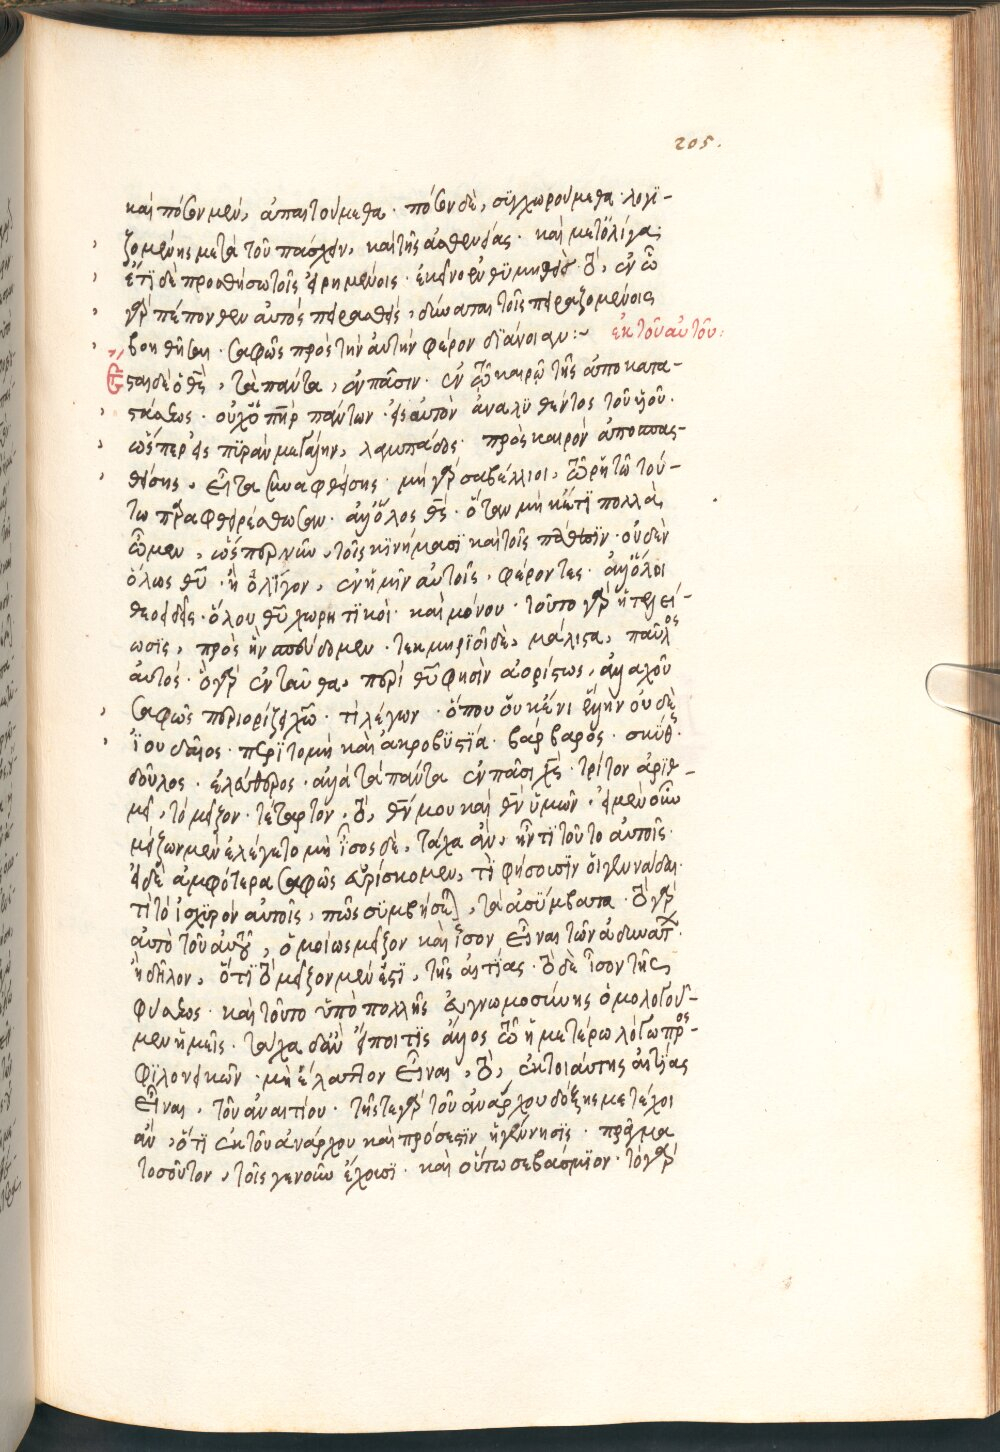 205.
καὶ πόσον μὲν, ἀπαιτούμεθα· πόσον δὲ, συγχωρούμεθα· λογι-
ζομένης μετὰ τοῦ πάσχειν, καὶ τῆς ἀσθενείας· καὶ μετ' ὀλίγα·
ἔτι δὲ προσθήσω τοῖς εἰρημένοις· ἐκεῖνο ἐνθυμηθεὶς τὸ, ἐν ᾧ
γὰρ πέπονθεν αὐτὸς πειρασθεὶς, δύναται τοῖς πειραζομένοις
βοηθῆσαι· σαφῶς πρὸς τὴν αὐτὴν φέρον διάνοιαν:~ ἐκ τοῦ αὐτοῦ:
Ἔσται δὲ ὁ θεὸς, τὰ πάντα, ἐν πᾶσιν· ἐν τῷ καιρῷ τῆς ἀποκατα-
στάσεως· οὐχ ὁ πατὴρ πάντων· εἰς αὐτὸν ἀναλυθέντος τοῦ υἱοῦ·
ὥσπερ εἰς πυρὰν μεγάλην, λαμπάδος πρὸς καιρὸν ἀποσπασ-
θείσης, εἶτα συναφθείσης· μὴ γὰρ σαβέλλιοι, τῷ ῥητῷ τού-
τῳ παραφθειρέσθωσαν· ἀλλ' ὅλος θεὸς· ὅταν μηκέτι πολλὰ
ὦμεν, ὥσπερ νῦν, τοῖς κινήμασι καὶ τοῖς πάθεσιν· οὐδὲν
ὅλως θεοῦ· ἢ ὀλίγον, ἐν ἡμῖν αὐτοῖς, φέροντες· ἀλλ' ὅλοι
θεοειδεῖς· ὅλου θεοῦ χωρητικοὶ· καὶ μόνου· τοῦτο γὰρ ἡ τελεί-
ωσις, πρὸς ἣν σπεύδομεν· τεκμηριοῖ δὲ, μάλιστα, παῦλος
αὐτός· ὃ γὰρ ἐνταῦθα, περὶ θεοῦ φησὶν ἀορίστως, ἀλλαχοῦ
σαφῶς περιορίζει χριστῷ· τί λέγων· ὅπου οὐκ ἔνι ἕλλην οὐδὲ
ἰουδαῖος· περιτομὴ καὶ ἀκροβυστία· βάρβαρος· σκύθης·
δοῦλος· ἐλεύθερος· ἀλλὰ τὰ πάντα ἐν πᾶσι χριστός· τρίτον ἀρίθ-
μει, τὸ μεῖζον· τέταρτον, τὸ, θεόν μου καὶ θεὸν ὑμῶν· εἰ μὲν οὖν
μείζων μὲν ἐλέγετο μὴ ἴσος δὲ, τάχα ἂν, ἦν τι τοῦτο αὐτοῖς·
εἰ δὲ ἀμφότερα σαφῶς εὑρίσκομεν, τί φήσουσιν οἱ γεννάδαι·
τί τὸ ἰσχυρὸν αὐτοῖς, πῶς συμβήσεται, τὰ ἀσύμβατα· τὸ γὰρ
αὐτὸ τοῦ αὐτοῦ, ὁμοίως μεῖζον καὶ ἴσον εἶναι τῶν ἀδυνάτων·
ἢ δῆλον, ὅτι τὸ μεῖζον μέν ἐστι, τῆς αἰτίας· τὸ δὲ ἴσον τῆς
φύσεως· καὶ τοῦτο ὑπὸ πολλῆς εὐγνωμοσύνης ὁμολογοῦ-
μεν ἡμεῖς· τάχα δ' ἂν εἴποι τις ἄλλος τῷ ἡμετέρῳ λόγῳ προσ-
φιλονεικῶν· μὴ ἔλαττον εἶναι, τὸ, ἐκ τοιαύτης αἰτίας
εἶναι, τοῦ ἀναιτίου· τῆς τε γὰρ τοῦ ἀνάρχου δόξης μετέχοι
ἂν, ὅτι ἐκ τοῦ ἀνάρχου καὶ πρόσεστιν ἡ γέννησις· πρᾶγμα
τοσοῦτον, τοῖς γε νοῦν ἔχουσι· καὶ οὕτω σεβάσμιον· τὸ γὰρ